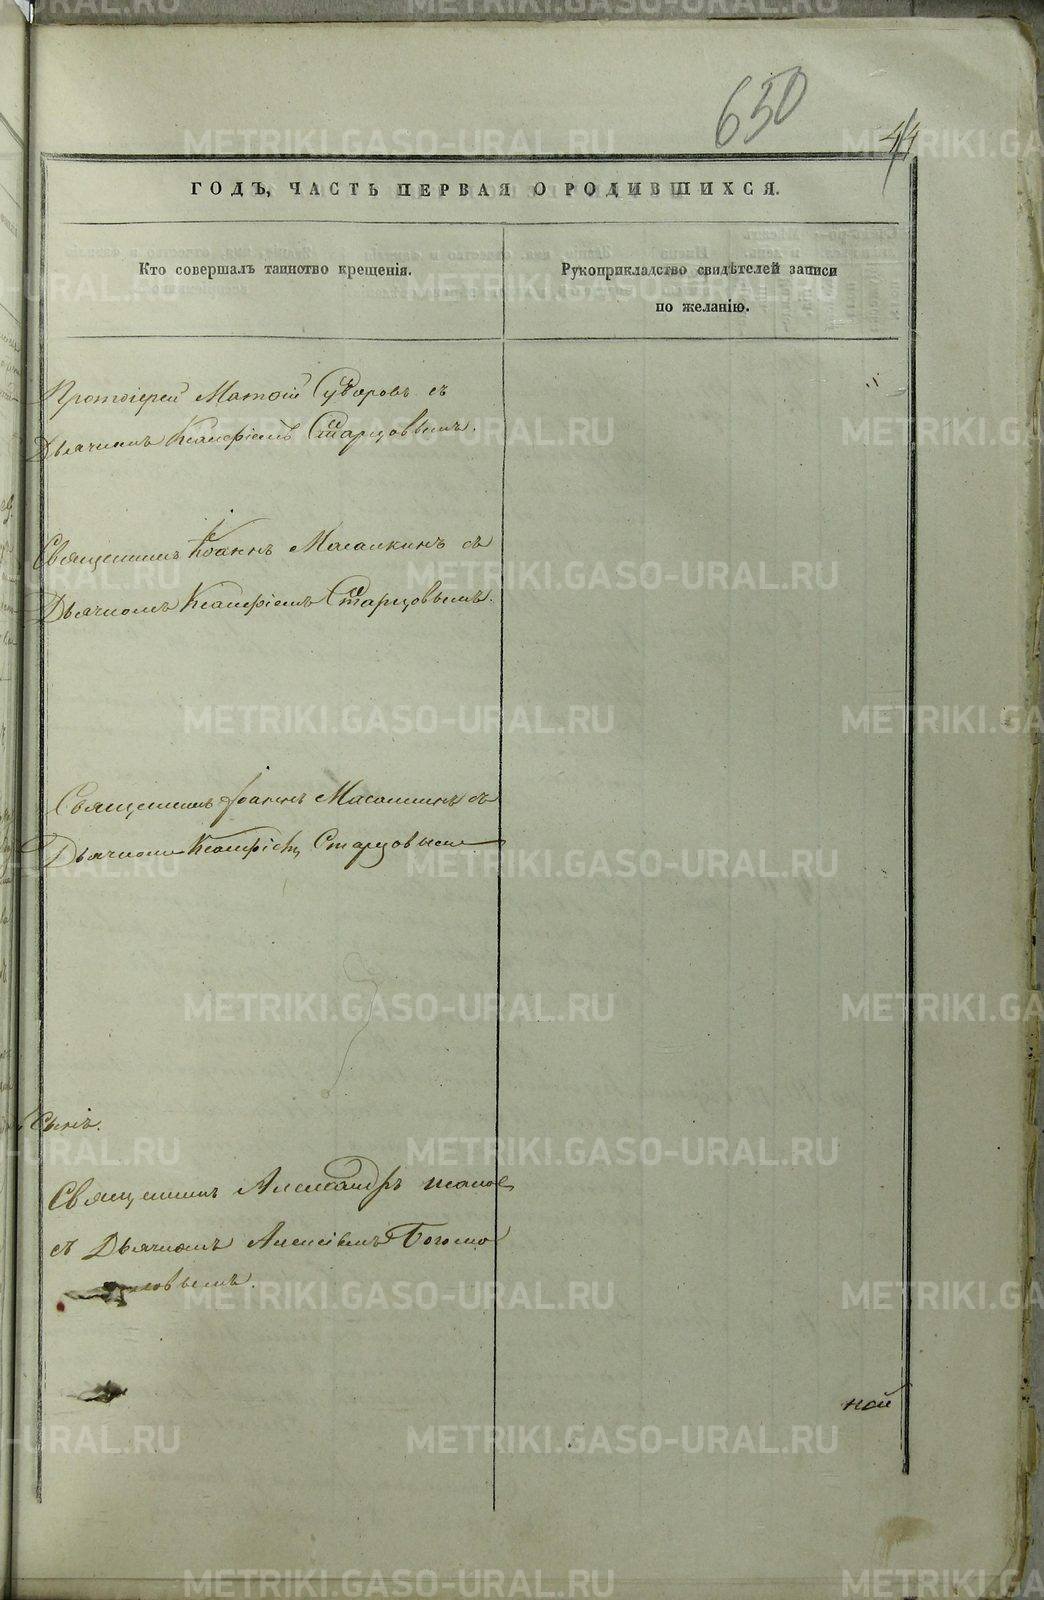 650
44
ГОДЪ, ЧАСТЬ ПЕРВАЯ О РОДИВШИХСЯ.
Кто совершалъ таинство крещенія.
Рукоприкладство свидѣтелей записи
по желанію.
Протоіерей Матѳій Суворовъ съ
Дьячкомъ Старцовымъ.
Священникъ Іоаннъ Масалкинъ съ
Дьячкомъ Старцовымъ.
Священникъ Іоаннъ съ
Дьячкомъ Старцовымъ
Сынъ.
Священникъ Александръ
съ Дьячкомъ Алексіемъ Богомо
ловымъ.
ной
METRIKI.GASO-URAL.RU